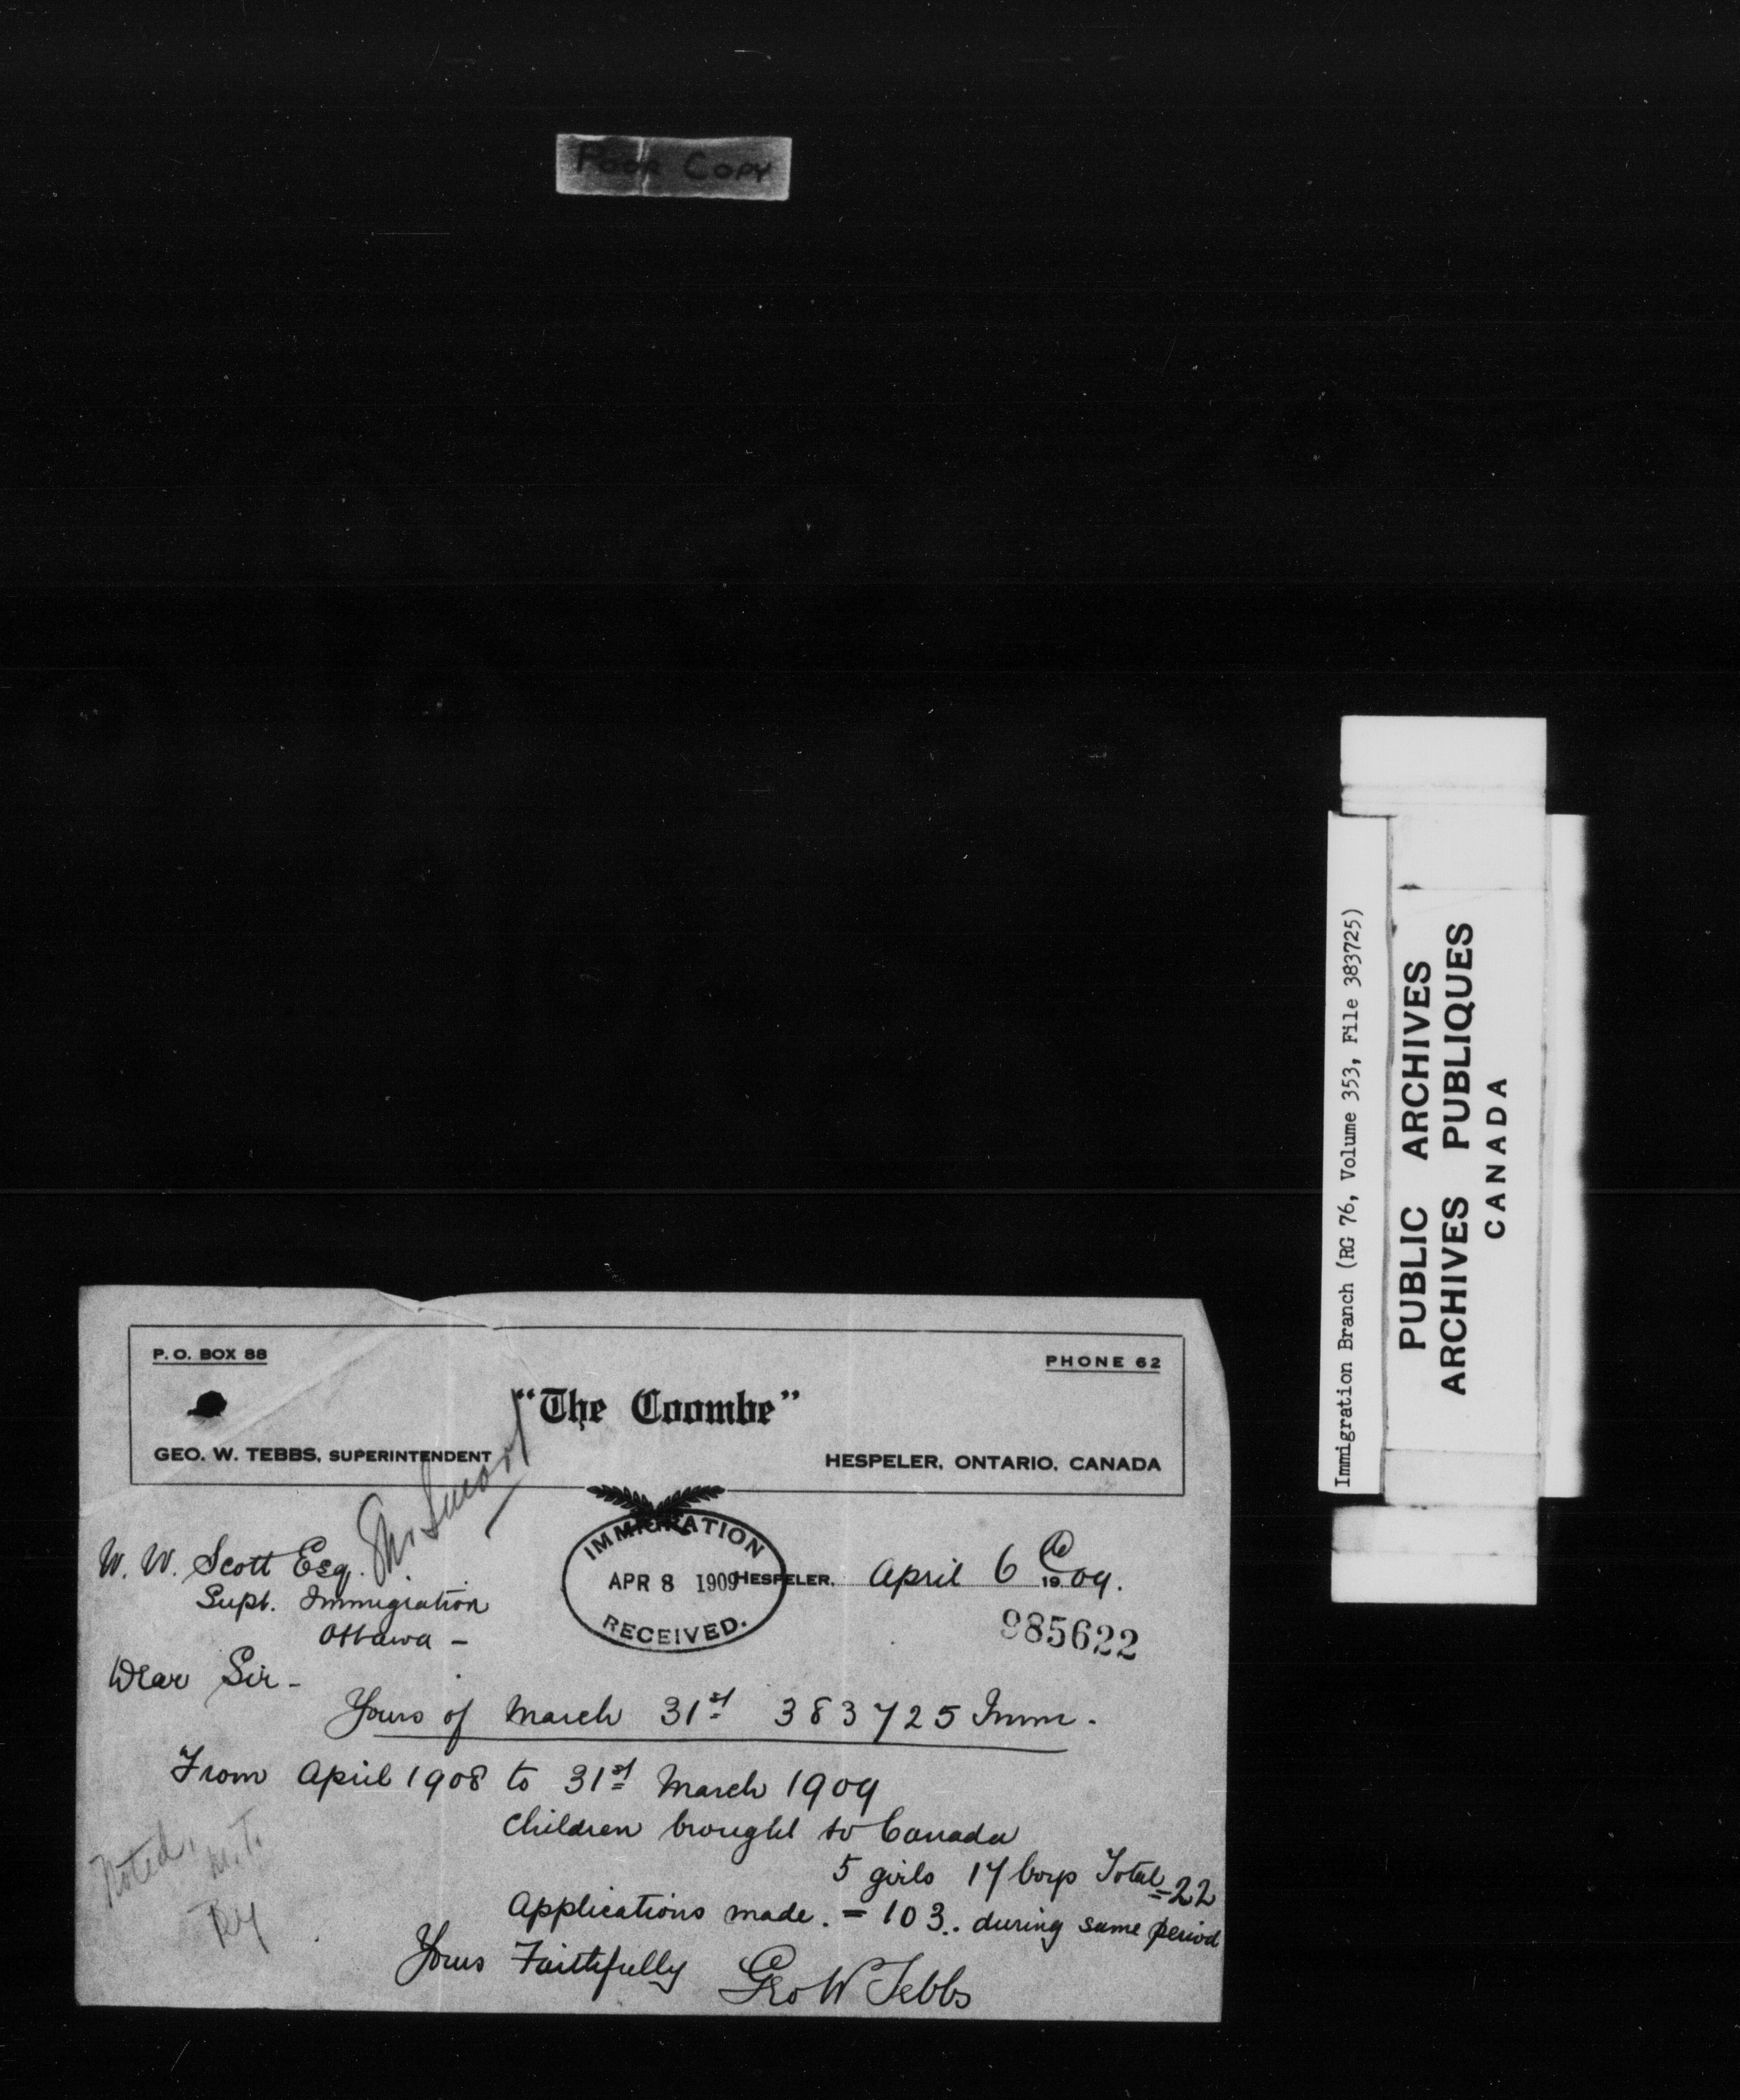 POOR COPY
P. O. BOX 88
PHONE 62
"The Coombe"
GEO. W. TEBBS, SUPERINTENDENT
HESPELER, ONTARIO, CANADA
Mr. Smart
IMMIGRATION
APR 8 1909
RECEIVED.
W. W. Scott Esq.
Supt. Immigration
Ottawa -
HESPELER, April 6 1909.
985622
Dear Sir -
Yours of March 31st 383725 Imm.
From April 1908 to 31st March 1909
Children brought to Canada
5 girls 17 boys Total = 22
Applications made. = 103. during same period
Noted,
M.T.
Yours Faithfully Geo W Tebbs
Immigration Branch (RG 76, Volume 353, File 383725)
PUBLIC ARCHIVES
ARCHIVES PUBLIQUES
CANADA